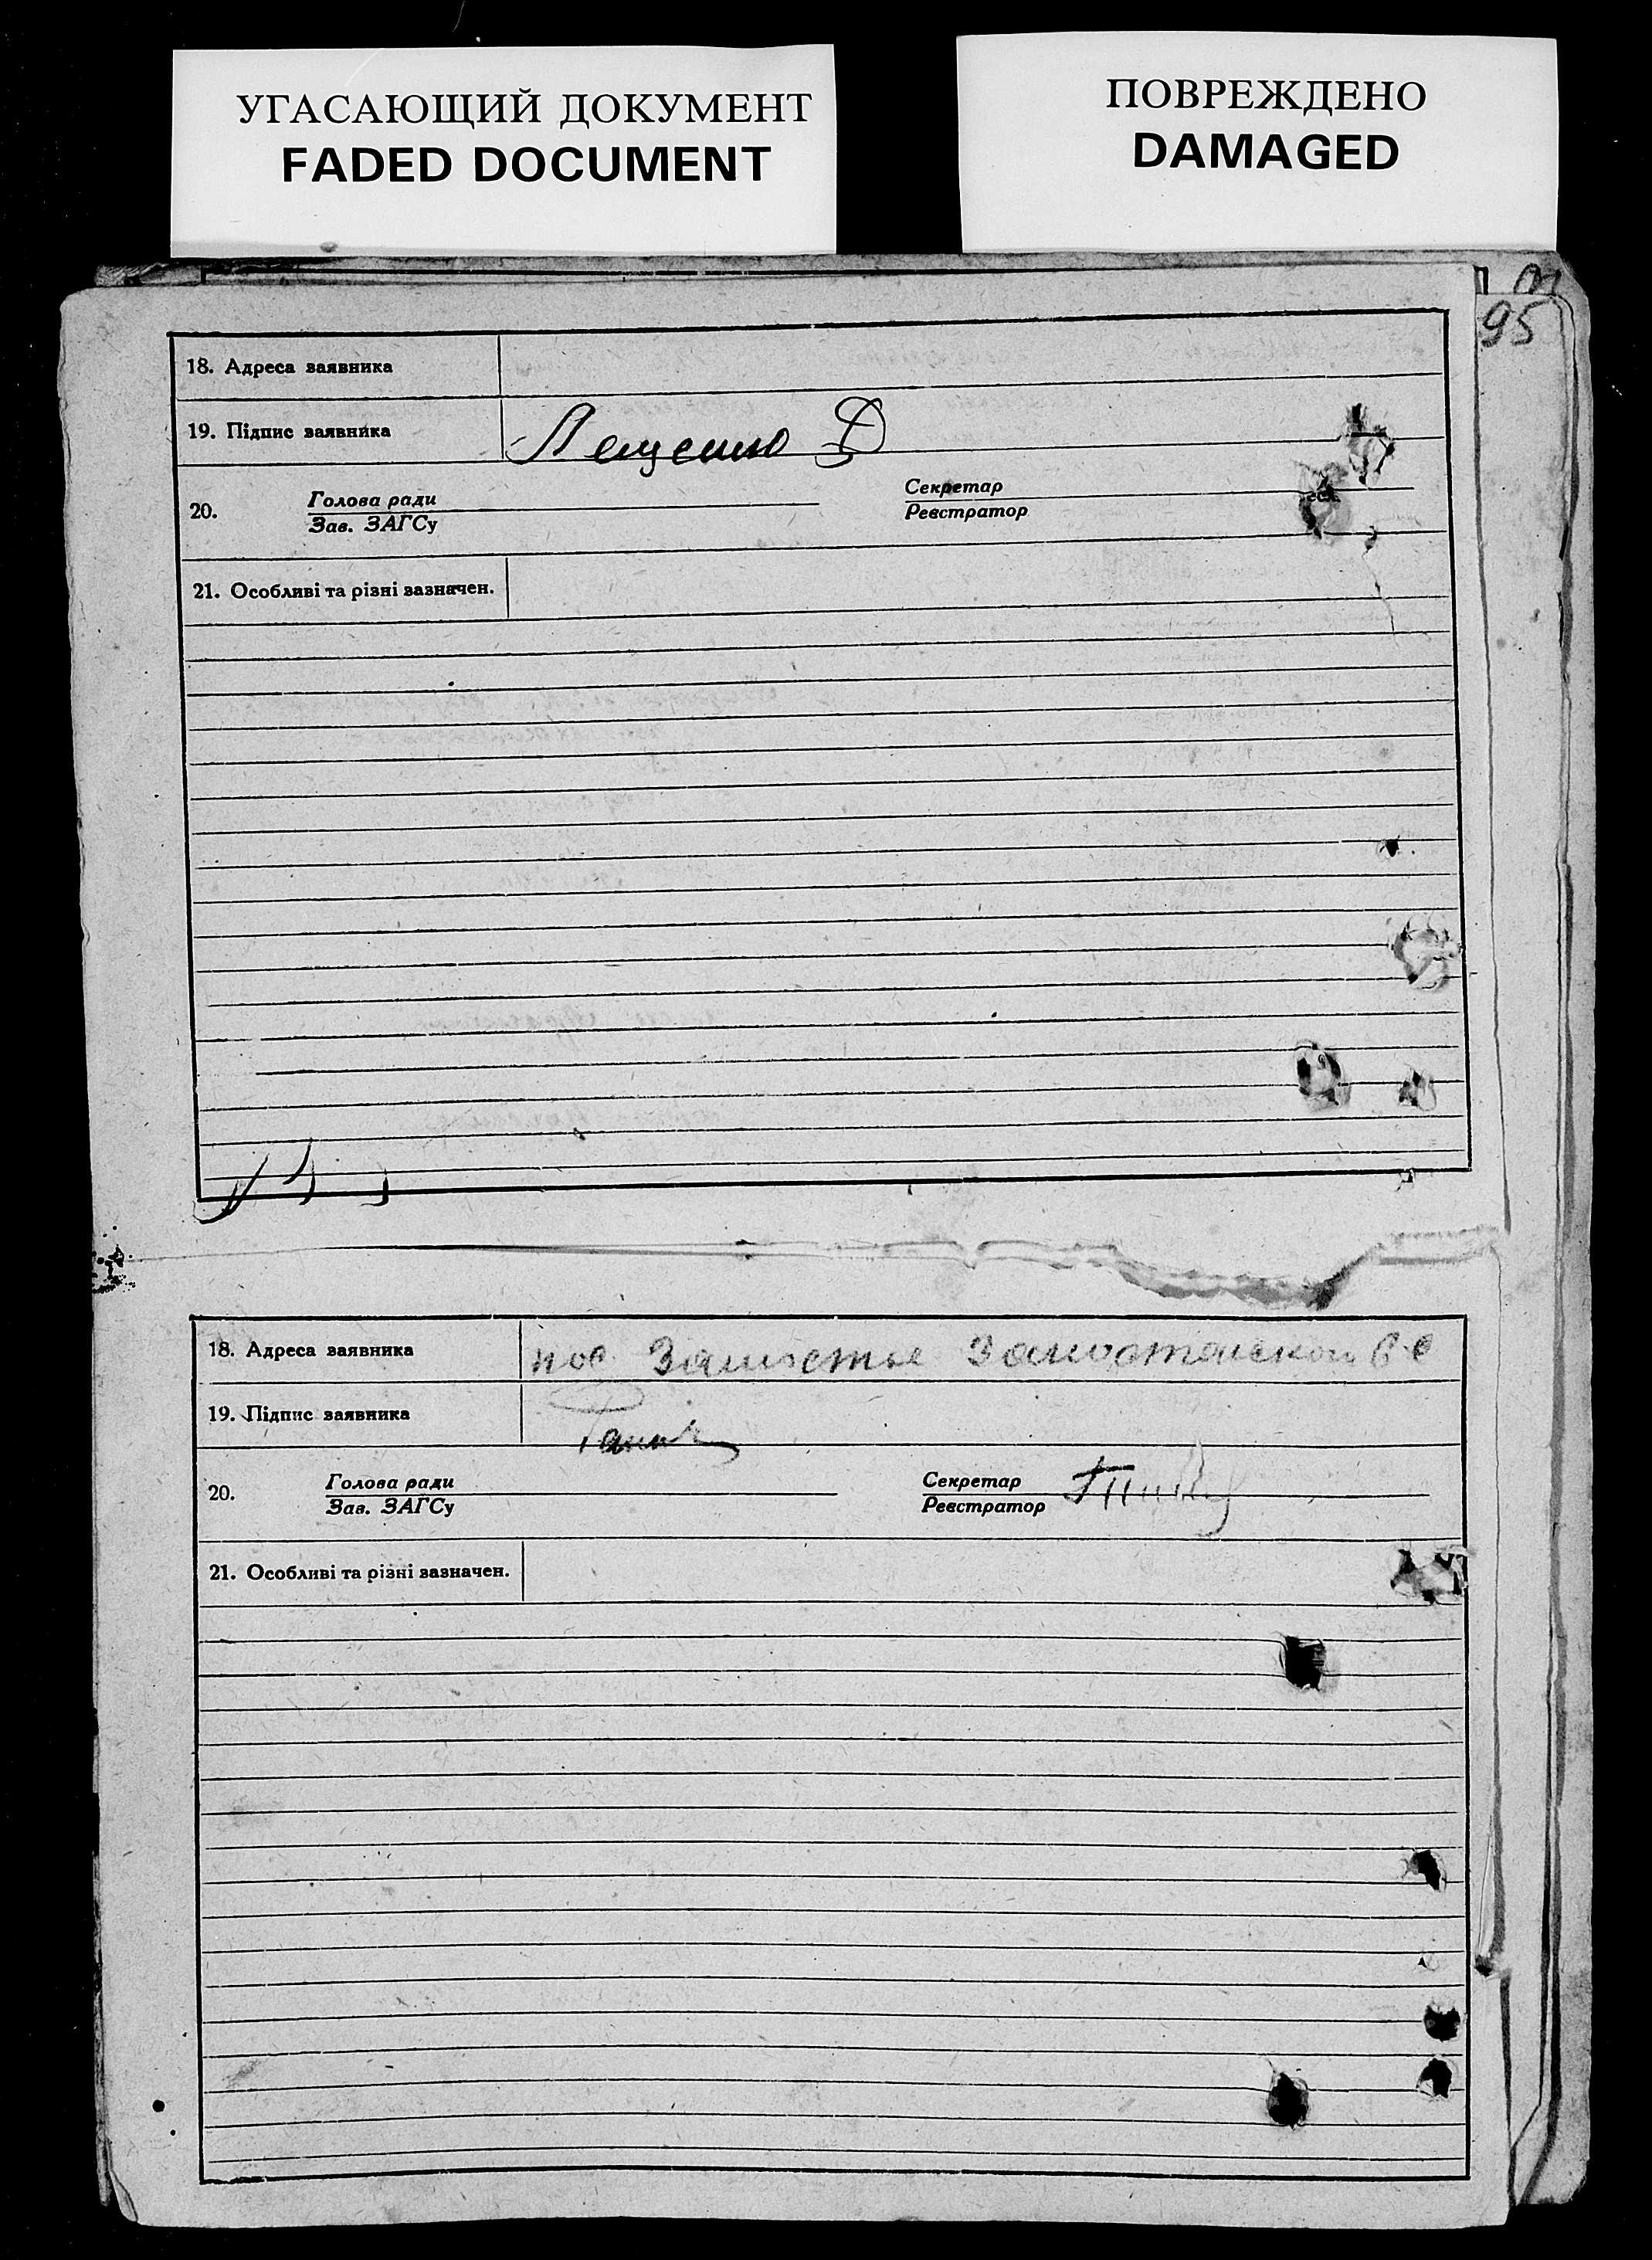 УГАСАЮЩИЙ ДОКУМЕНТ
FADED DOCUMENT
ПОВРЕЖДЕНО
DAMAGED
95
18. Адреса заявника
19. Підпис заявника Лещенко Д
20. Голова ради Секретар
Зав. ЗАГСу Реєстратор
21. Особливі та різні зазначен.
18. Адреса заявника пос. Замостье
19. Підпис заявника
20. Голова ради Секретар
Зав. ЗАГСу Реєстратор
21. Особливі та різні зазначен.